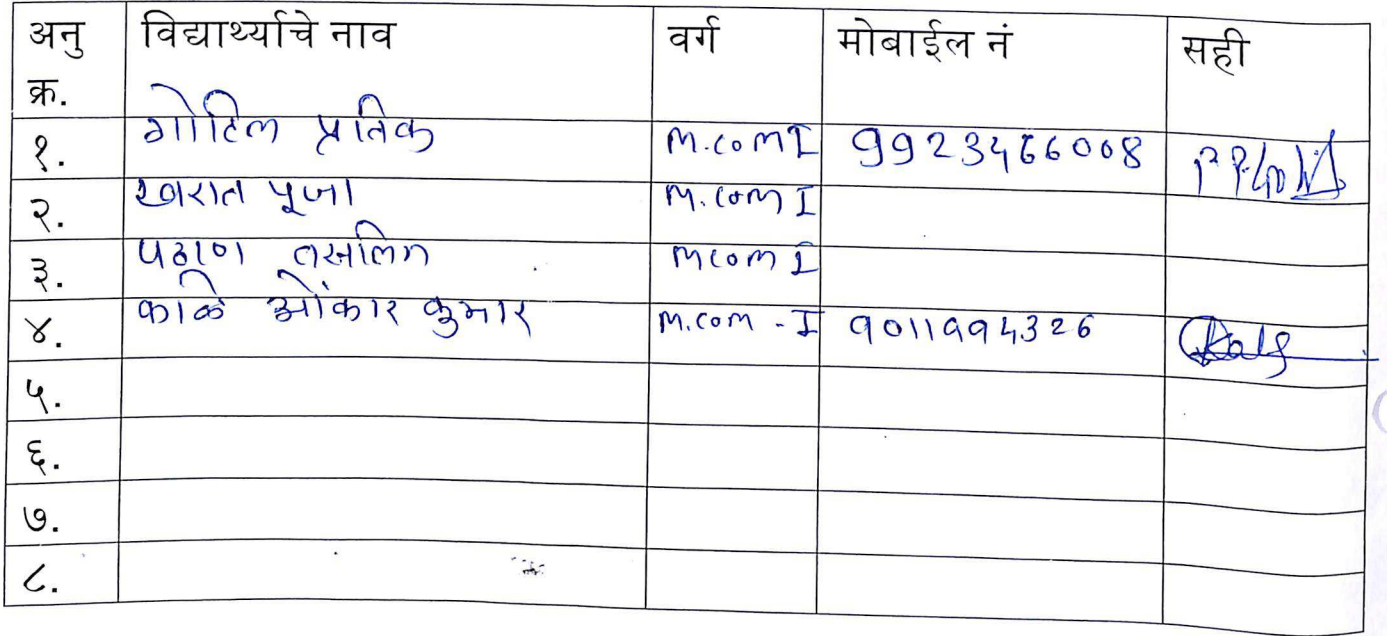 अनु क्र. विद्यार्थ्याचे नाव वर्ग मोबाईल नं सही
१. गोटिल प्रतिक M.COM I 9923466008
२. खरात पूजा M.COM I
३. पठाण तसलिम MCOM I
४. काळे ओंकार कुमार M.COM - I 9011994326
५.
६.
७.
८.